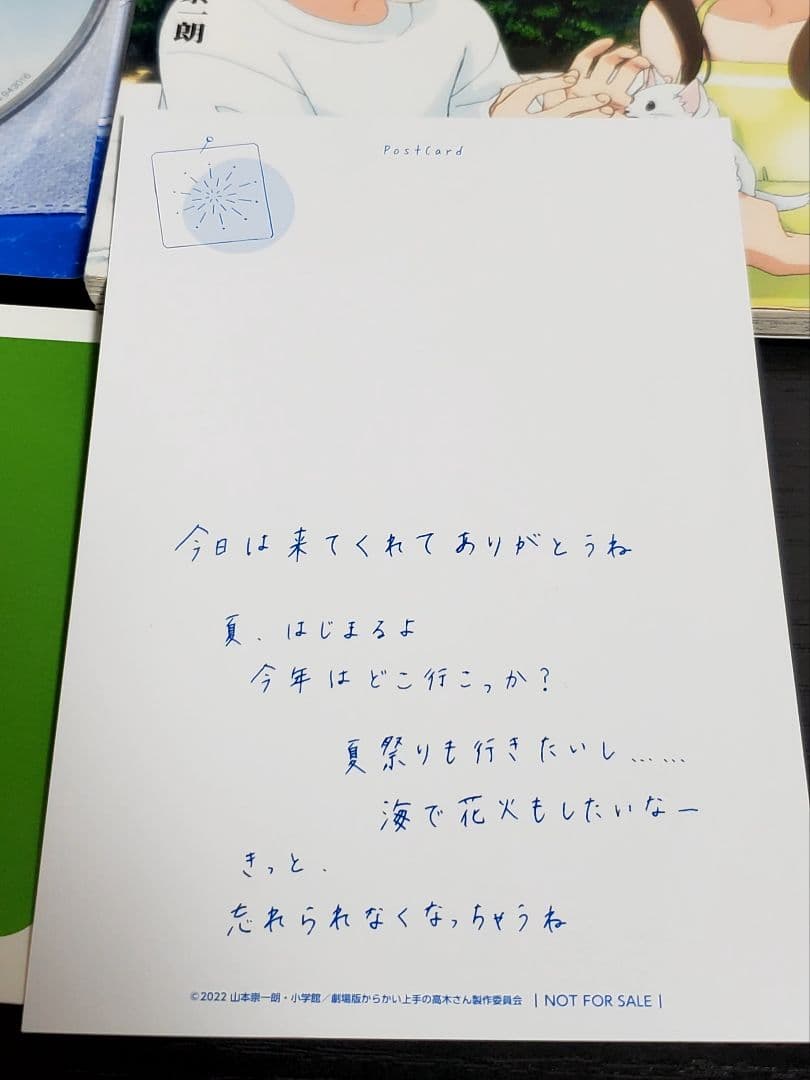 一朗
943016
Postcard
今日は来てくれてありがとうね
夏、はじまるよ
今年はどこ行こっか？
夏祭りも行きたいし……
海で花火もしたいなー
きっと、
忘れられなくなっちゃうね
©2022 山本崇一朗・小学館／劇場版からかい上手の高木さん製作委員会 | NOT FOR SALE |